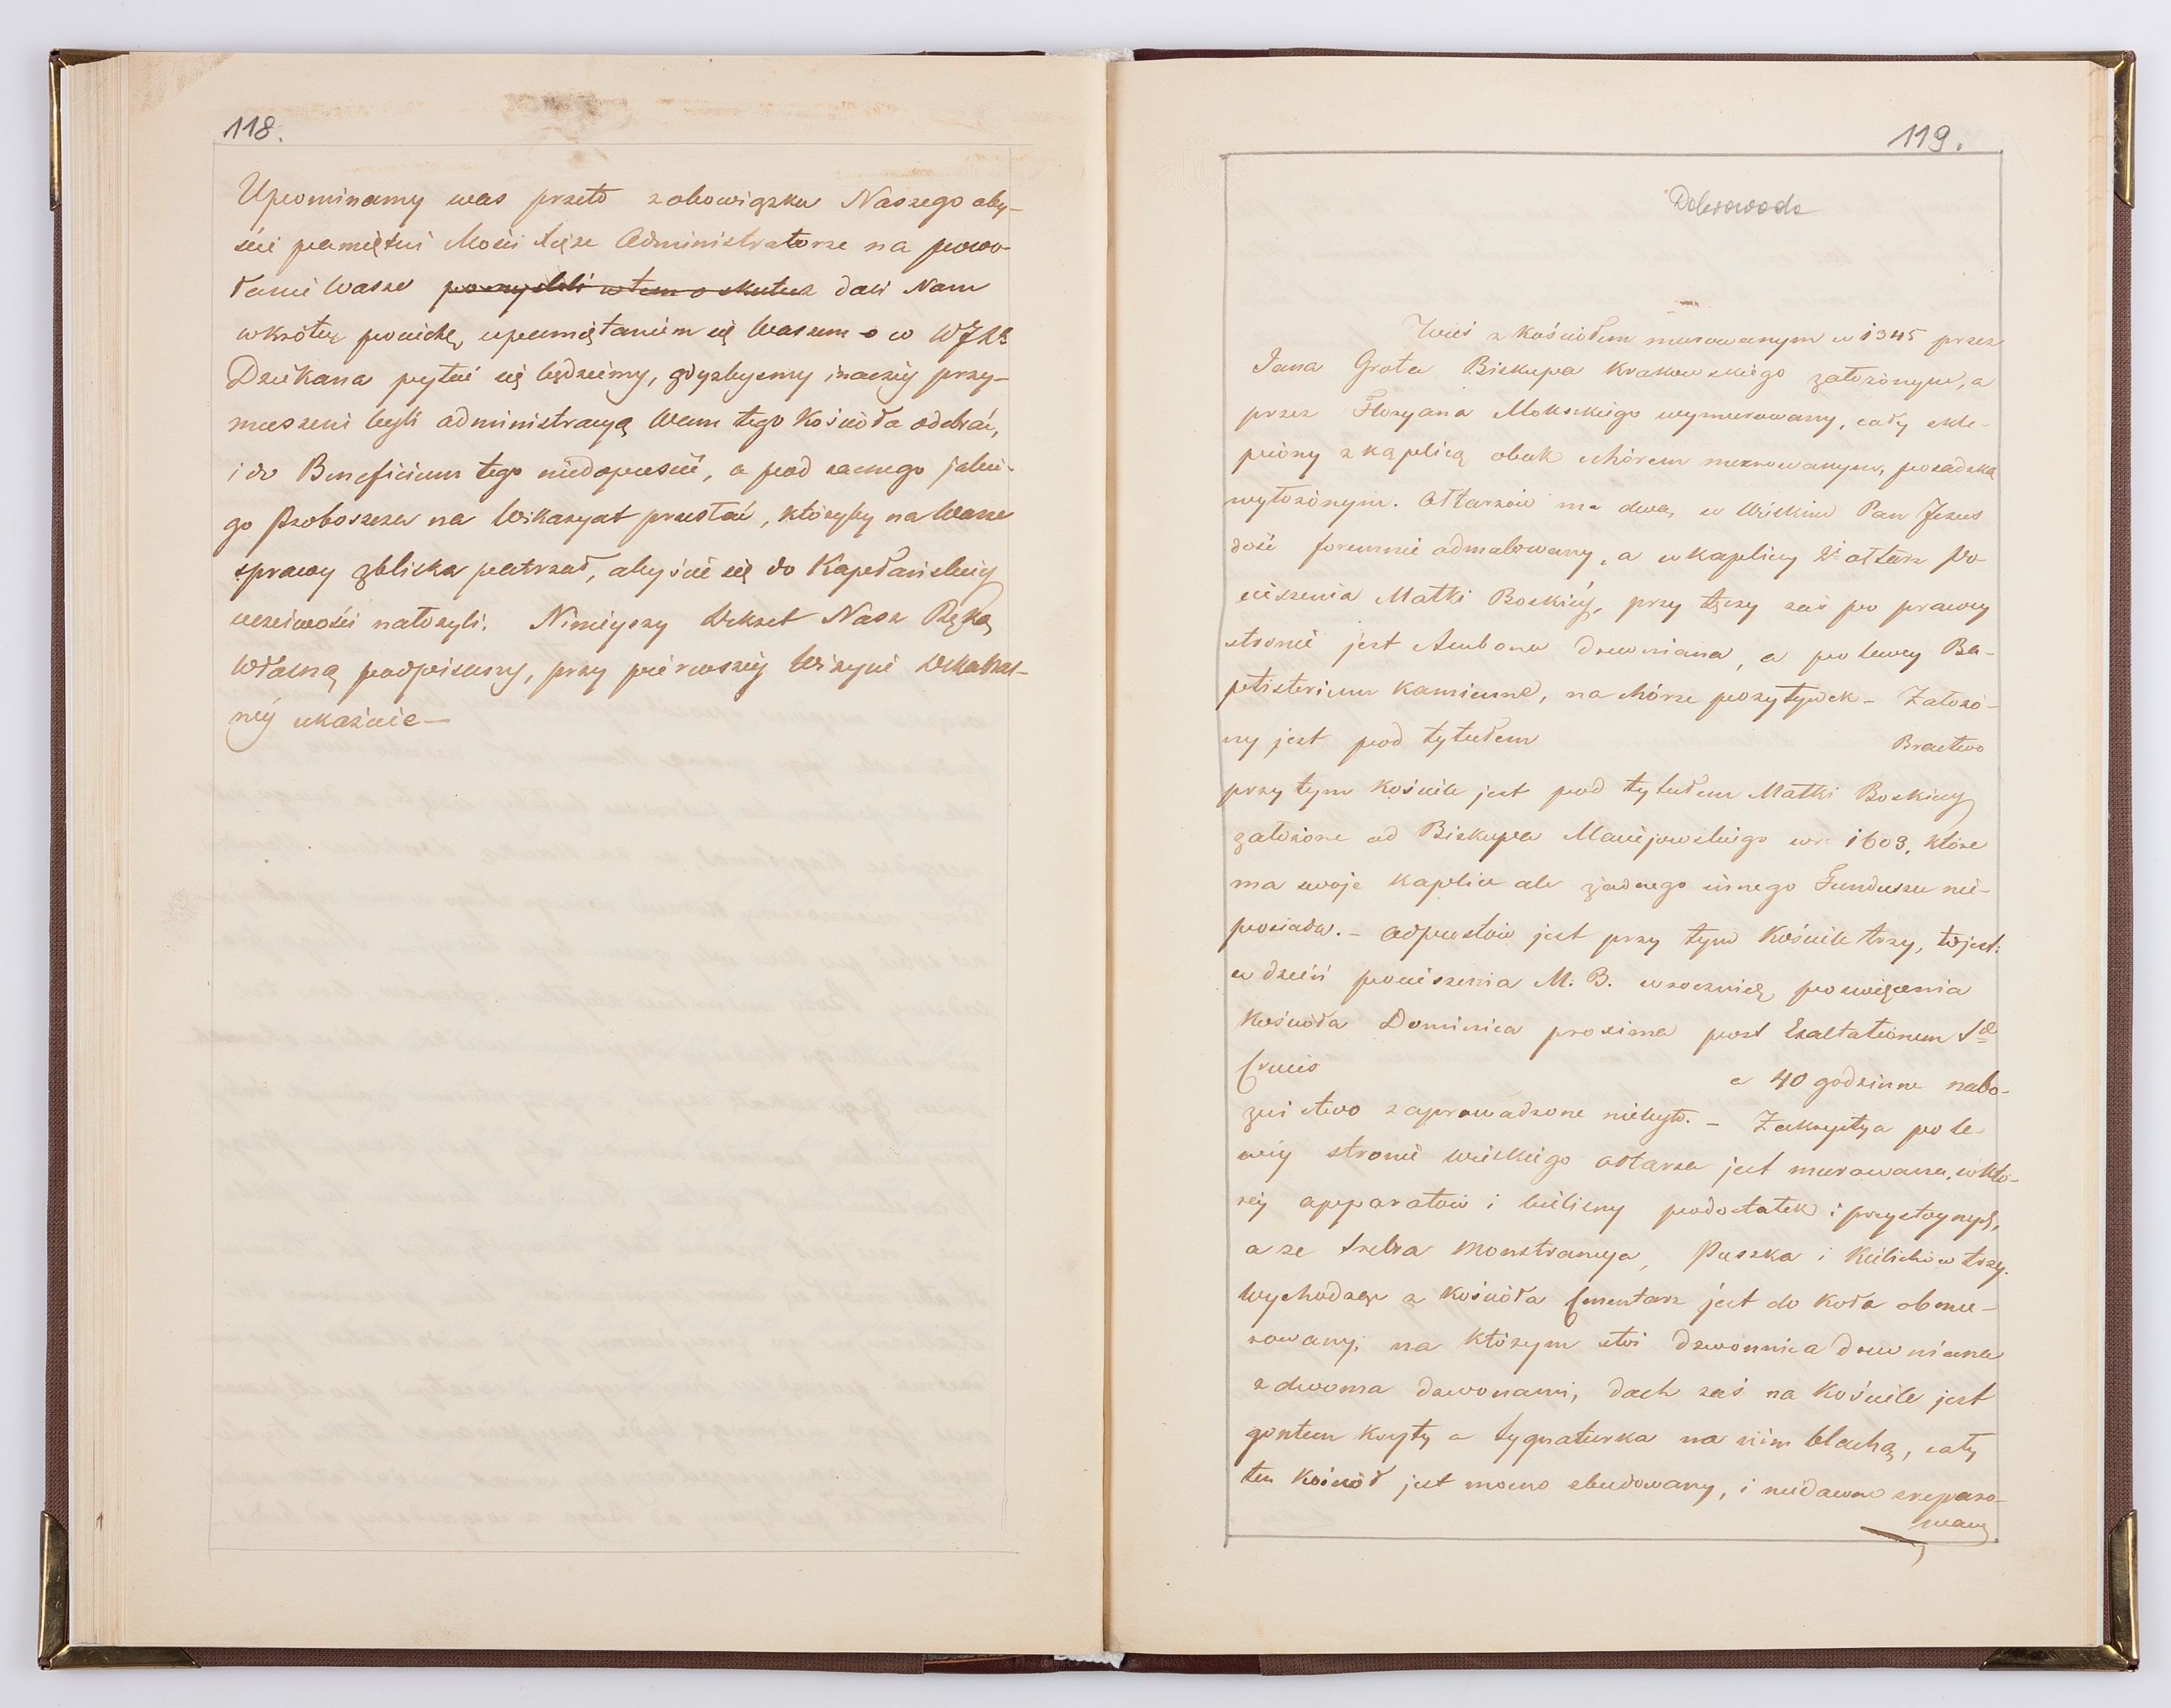 118.
Upominamy was przeto z obowiązku Naszego aby-
ście pamiętni Mości Xięże Administratorze na powo-
łanie Wasze pomyśleli w tem o skutek dali Nam
wkrótce pociechę, upamiętaniem się Waszem o co WJX
Dziekana pytać się będziemy, gdyzbyśmy inaczéj przy-
muszeni byli administracyą Wam tego Kościoła odebrać,
i do Beneficium tego niedopuścić, a pod zacnego jakie-
go Proboszcza na Wikaryat przesłać, któryby na Wasze
sprawy zbliska patrzał, abyście się do Kapłańskiéj
uczciwości nałożyli. Niniejszy Dekret Nasz Ręką
Własną podpisany, przy pierwszéj Wizycie Dziekań-
néj ukażcie —
119.
Dobrowoda
Wieś z kościołem murowanym w 1345 przez
Jana Grota Biskupa Krakowskiego założonym, a
przez Floryana Mokrskiego wymurowany, cały skle-
piony z kaplicą obok chórem murowanym, posadzką
wyłożonym. Ołtarzów ma dwa, w Wielkim Pan Jezus
dość foremnie odmalowany, a w kaplicy 2i ołtarz Po
cieszenia Matki Boskiéj, przy tęczy zaś po prawey
stronie jest Ambona drewniana, a po lewey Ba-
ptisterium kamienne, na chórze pozytywek - Założo-
ny jest pod tytułem Bractwo
przy tym kościele jest pod tytułem Matki Boskiey
założone od Biskupa Maciejowskiego w r. 1603. które
ma swoje kaplice ale żadnego innego Funduszu nie-
posiada. - Odpustów jest przy tym Kościele trzy, to jest:
w dzień pocieszenia M. B. w rocznicę poswięcenia
Kościoła Dominica proxima post Exaltationem S
Crucis a 40 godzinne nabo-
żeństwo zaprowadzone niebyło. - Zakrystya po le-
wéj stronie wielkiego ołtarza jest murowana, w któ-
réj apparatów i bielizny podostatek i przystoynych,
a ze srebra Monstrancya, Puszka i Kielichów trzy.
Wychodząc z kościoła Cmentarz jest do koła obmu-
rowany, na którym stoi dzwonnica drewniana
z dwoma dzwonami, dach zaś na Kościele jest
gontem kryty a sygnaturka na nim blachą, cały
ten Kościół jest mocno zbudowany, i niedawno zreparo-
wany.